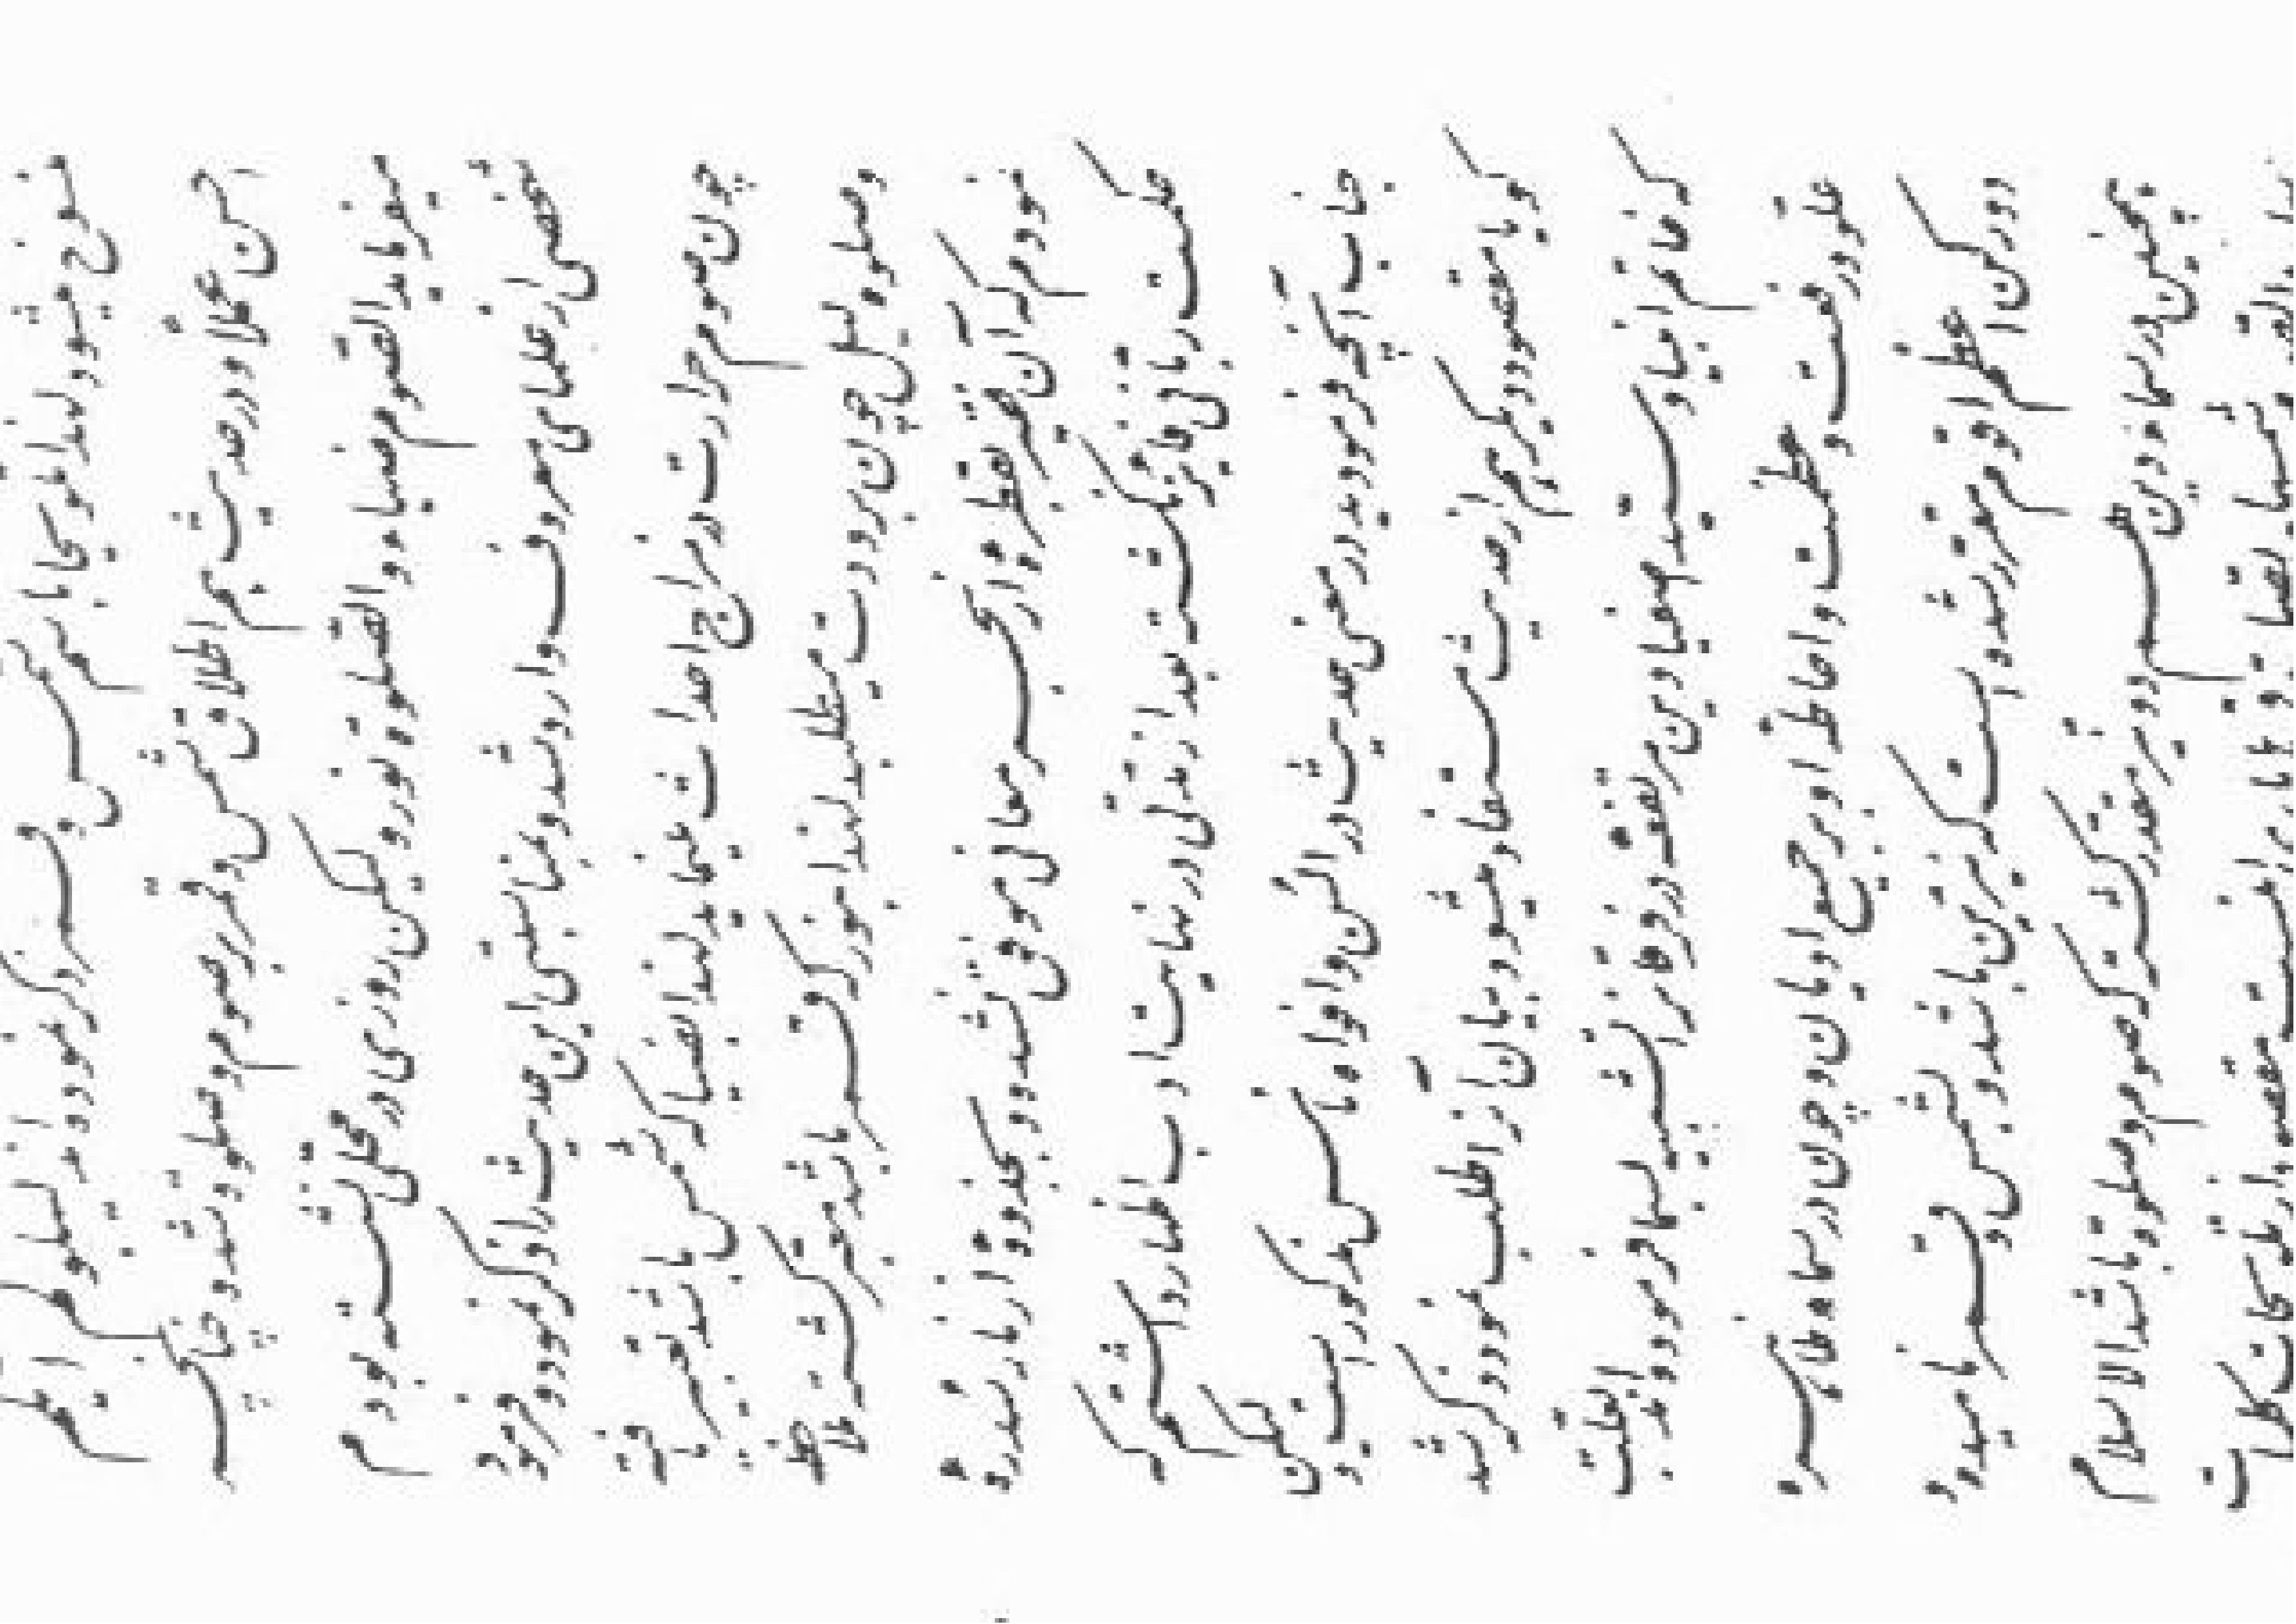 منسوخ میشود لهذا بتلویحات باسم شمس و قمر ذکر نموده لیبلوکم ایّکم
احسن عملا و در حدیث هم اطلاق شمس و قمر بر صوم و صلوة شده چنانچه
میفرماید الصّوم ضیاء و الصّلوة نور ولیکن روزی در محلی نشسته بودم
شخصی از علمای معروف وارد شدند و بمناسبتی این حدیث را ذکر نمودند و فرمودند
چون صوم حرارت در مزاج احداث مینماید لهذا بضیا که شمس باشد تعبیر یافته
و صلوة لیل چون برودت میطلبد لهذا بنور که قمر باشد معبّر گشته ملاحظه
نمودم که آن فقیر بقطرهٔ از بحر معانی موفق نشده و بجذوهٔ از نار سدرهٔ
حکمت ربّانی فایز نگشته بعد از مدّتی در نهایت ادب اظهار داشتم که
جناب آنچه فرمودید در معنی حدیث در السن و افواه ناس مذکور است ولیکن
گویا مقصود دیگر هم از حدیث مستفاد میشود بیان آنرا طلب نمودند ذکر شد
که خاتم انبیا و سیّد اصفیا دین مرتفع در فرقان را تشبیه بسما فرمودند بعلّت
علو و رفعت و عظمت و احاطه او بر جمیع ادیان و چون در سماء ظاهره
دو رکن اعظم اقوم مقرّر شده است که نیّرین باشد و بشمس و قمر نامیده‌اند
همچنین در سماء دین هم دو نیّر مقدّر گشته که صوم و صلوة باشد الاسلام
سماء والصّوم شمسها والصّلوة قمرها باری اینست مقصود از تلویحات کلمات